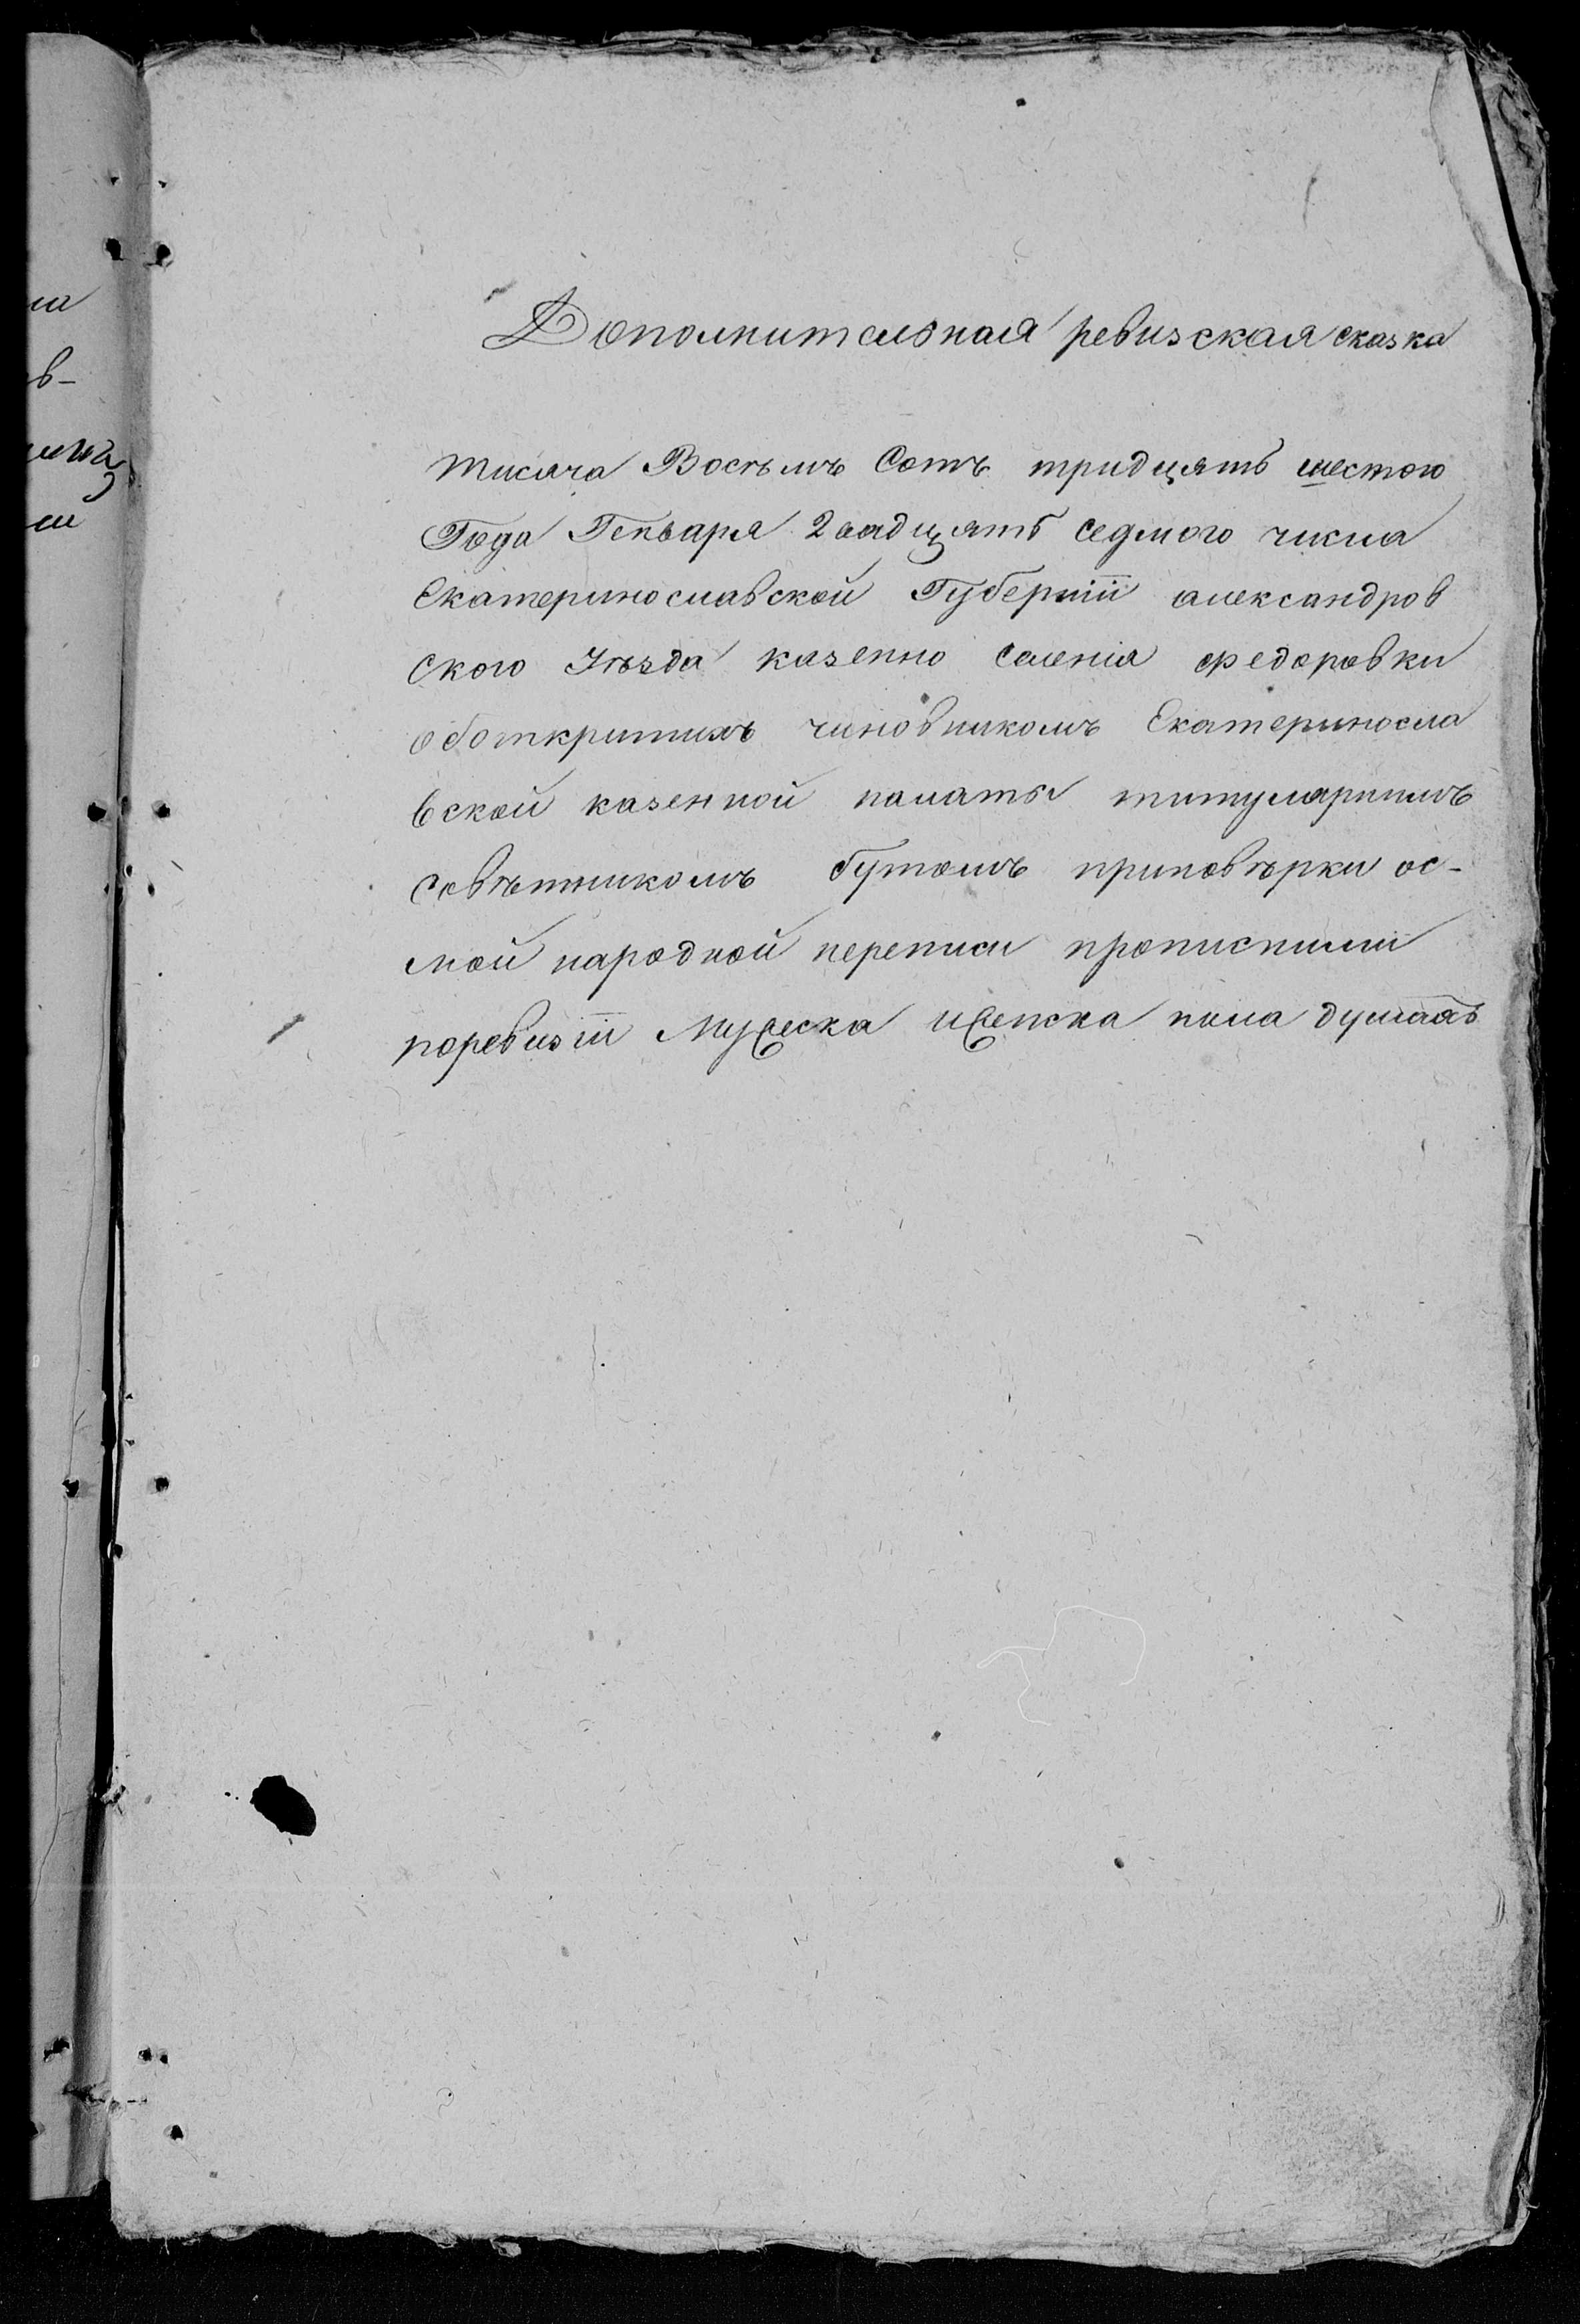 Дополнительная ревизская сказка
тисяча Восѣмъ Сотъ тридцять шестого
Года Генъваря 2вадцять седмого числа
Екатеринославской Губерніи александров
ского Уѣзда казенно Селенія федоровки
оботкритихъ чиновникомъ Екатериносла
вской казенной палаты титулярнимъ
совѣтникомъ Бутомъ приповѣрки ос-
мой народной переписи прописними
поревизіи Мужеска иженска пола душахъ